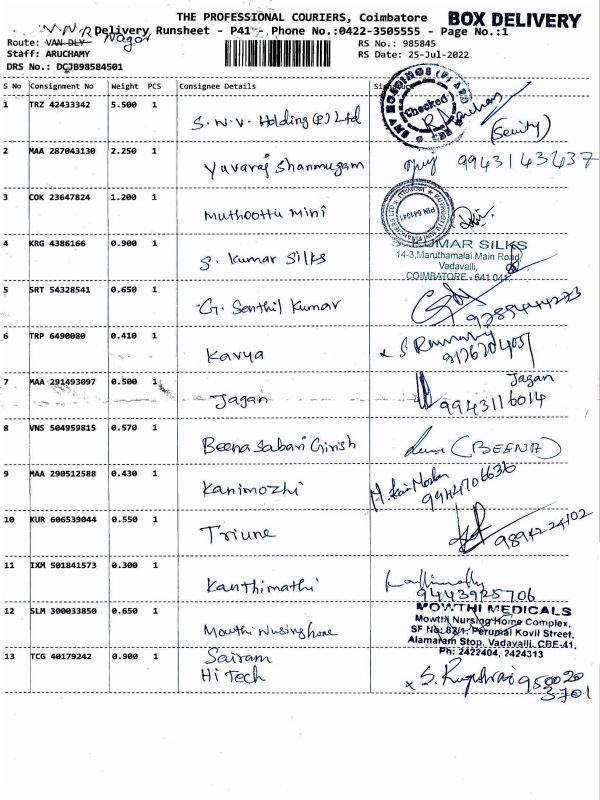 THE PROFESSIONAL COURIERS, Coimbatore
BOX DELIVERY
Delivery Runsheet - P41 - Phone No.:0422-3505555 - Page No.:1
Route: VAN DLY Nagar
RS No.: 985845
Staff: ARUCHAMY
RS Date: 25-Jul-2022
DRS No.: DCJB98584501
S No Consignment No Weight PCS Consignee Details
1 TRZ 42433342 5.500 1 S.N.V. Holding (P) Ltd
(Checked)
(Seurity)
2 MAA 287043130 2.250 1 Yuvaraj Shanmugam
3 COK 23647824 1.200 1 Muthoottu mini
PIN 641041
4 KRG 4386166 0.900 1 S. Kumar Silks
KUMAR SILKS
14-3,Maruthamalai Main Road
Vadavalli,
COIMBATORE - 641 041
5 SRT 54328541 0.650 1 G. Senthil Kumar
6 TRP 6490080 0.410 1 Kavya
7 MAA 291493097 0.500 1 Jagan
Jagan
9943116014
8 VNS 504959815 0.570 1 Beena Sabari Girish
(BEENA)
9 MAA 290512588 0.430 1 Kanimozhi
9944706636
10 KUR 606539044 0.550 1 Triune
9894224102
11 IXM 501841573 0.300 1 Kanthimathi
9443925706
12 SLM 300033850 0.650 1 Mowthi Nursing home
MOWTHI MEDICALS
Mowthi Nursing Home Complex,
SF No: 82/1, Perumal Kovil Street,
Alamaram Stop, Vadavalli, CBE-41.
Ph: 2422404, 2424313
13 TCG 40179242 0.900 1 Sairam
Hi Tech
950020
3701